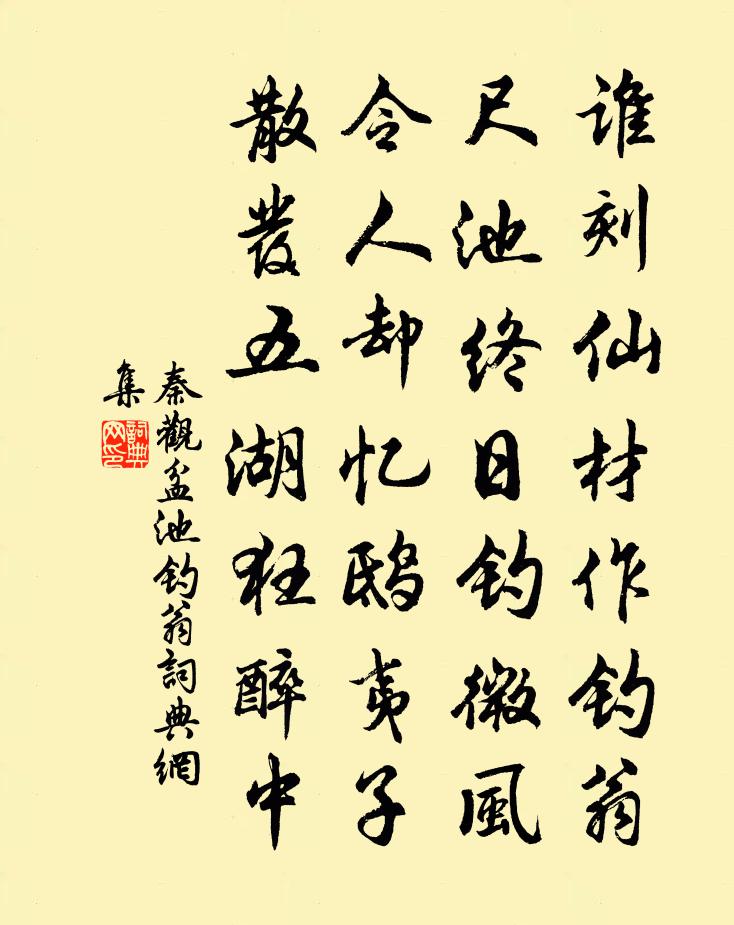 谁刻仙材作钓翁
尺池终日钓微風
令人却忆鸱夷子
散發五湖狂醉中
秦觀盆池钓翁詞典網
集
詞典
网印